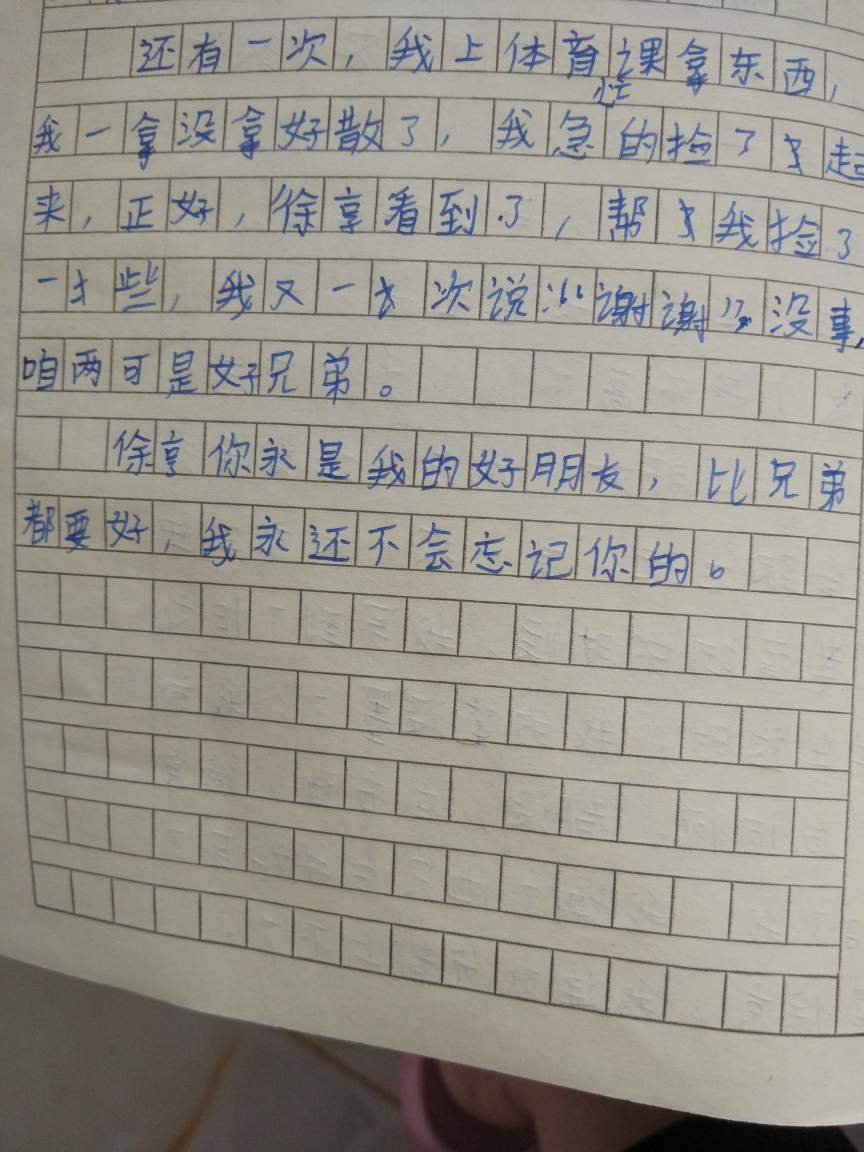 还有一次，我上体育课拿东西，
我一拿没拿好散了，我急忙的捡了起
来，正好，徐享看到了，帮我捡了
一些，我又一次说：“谢谢”没事，
咱两可是好兄弟。
徐享你永是我的好朋友，比兄弟
都要好，我永还不会忘记你的。